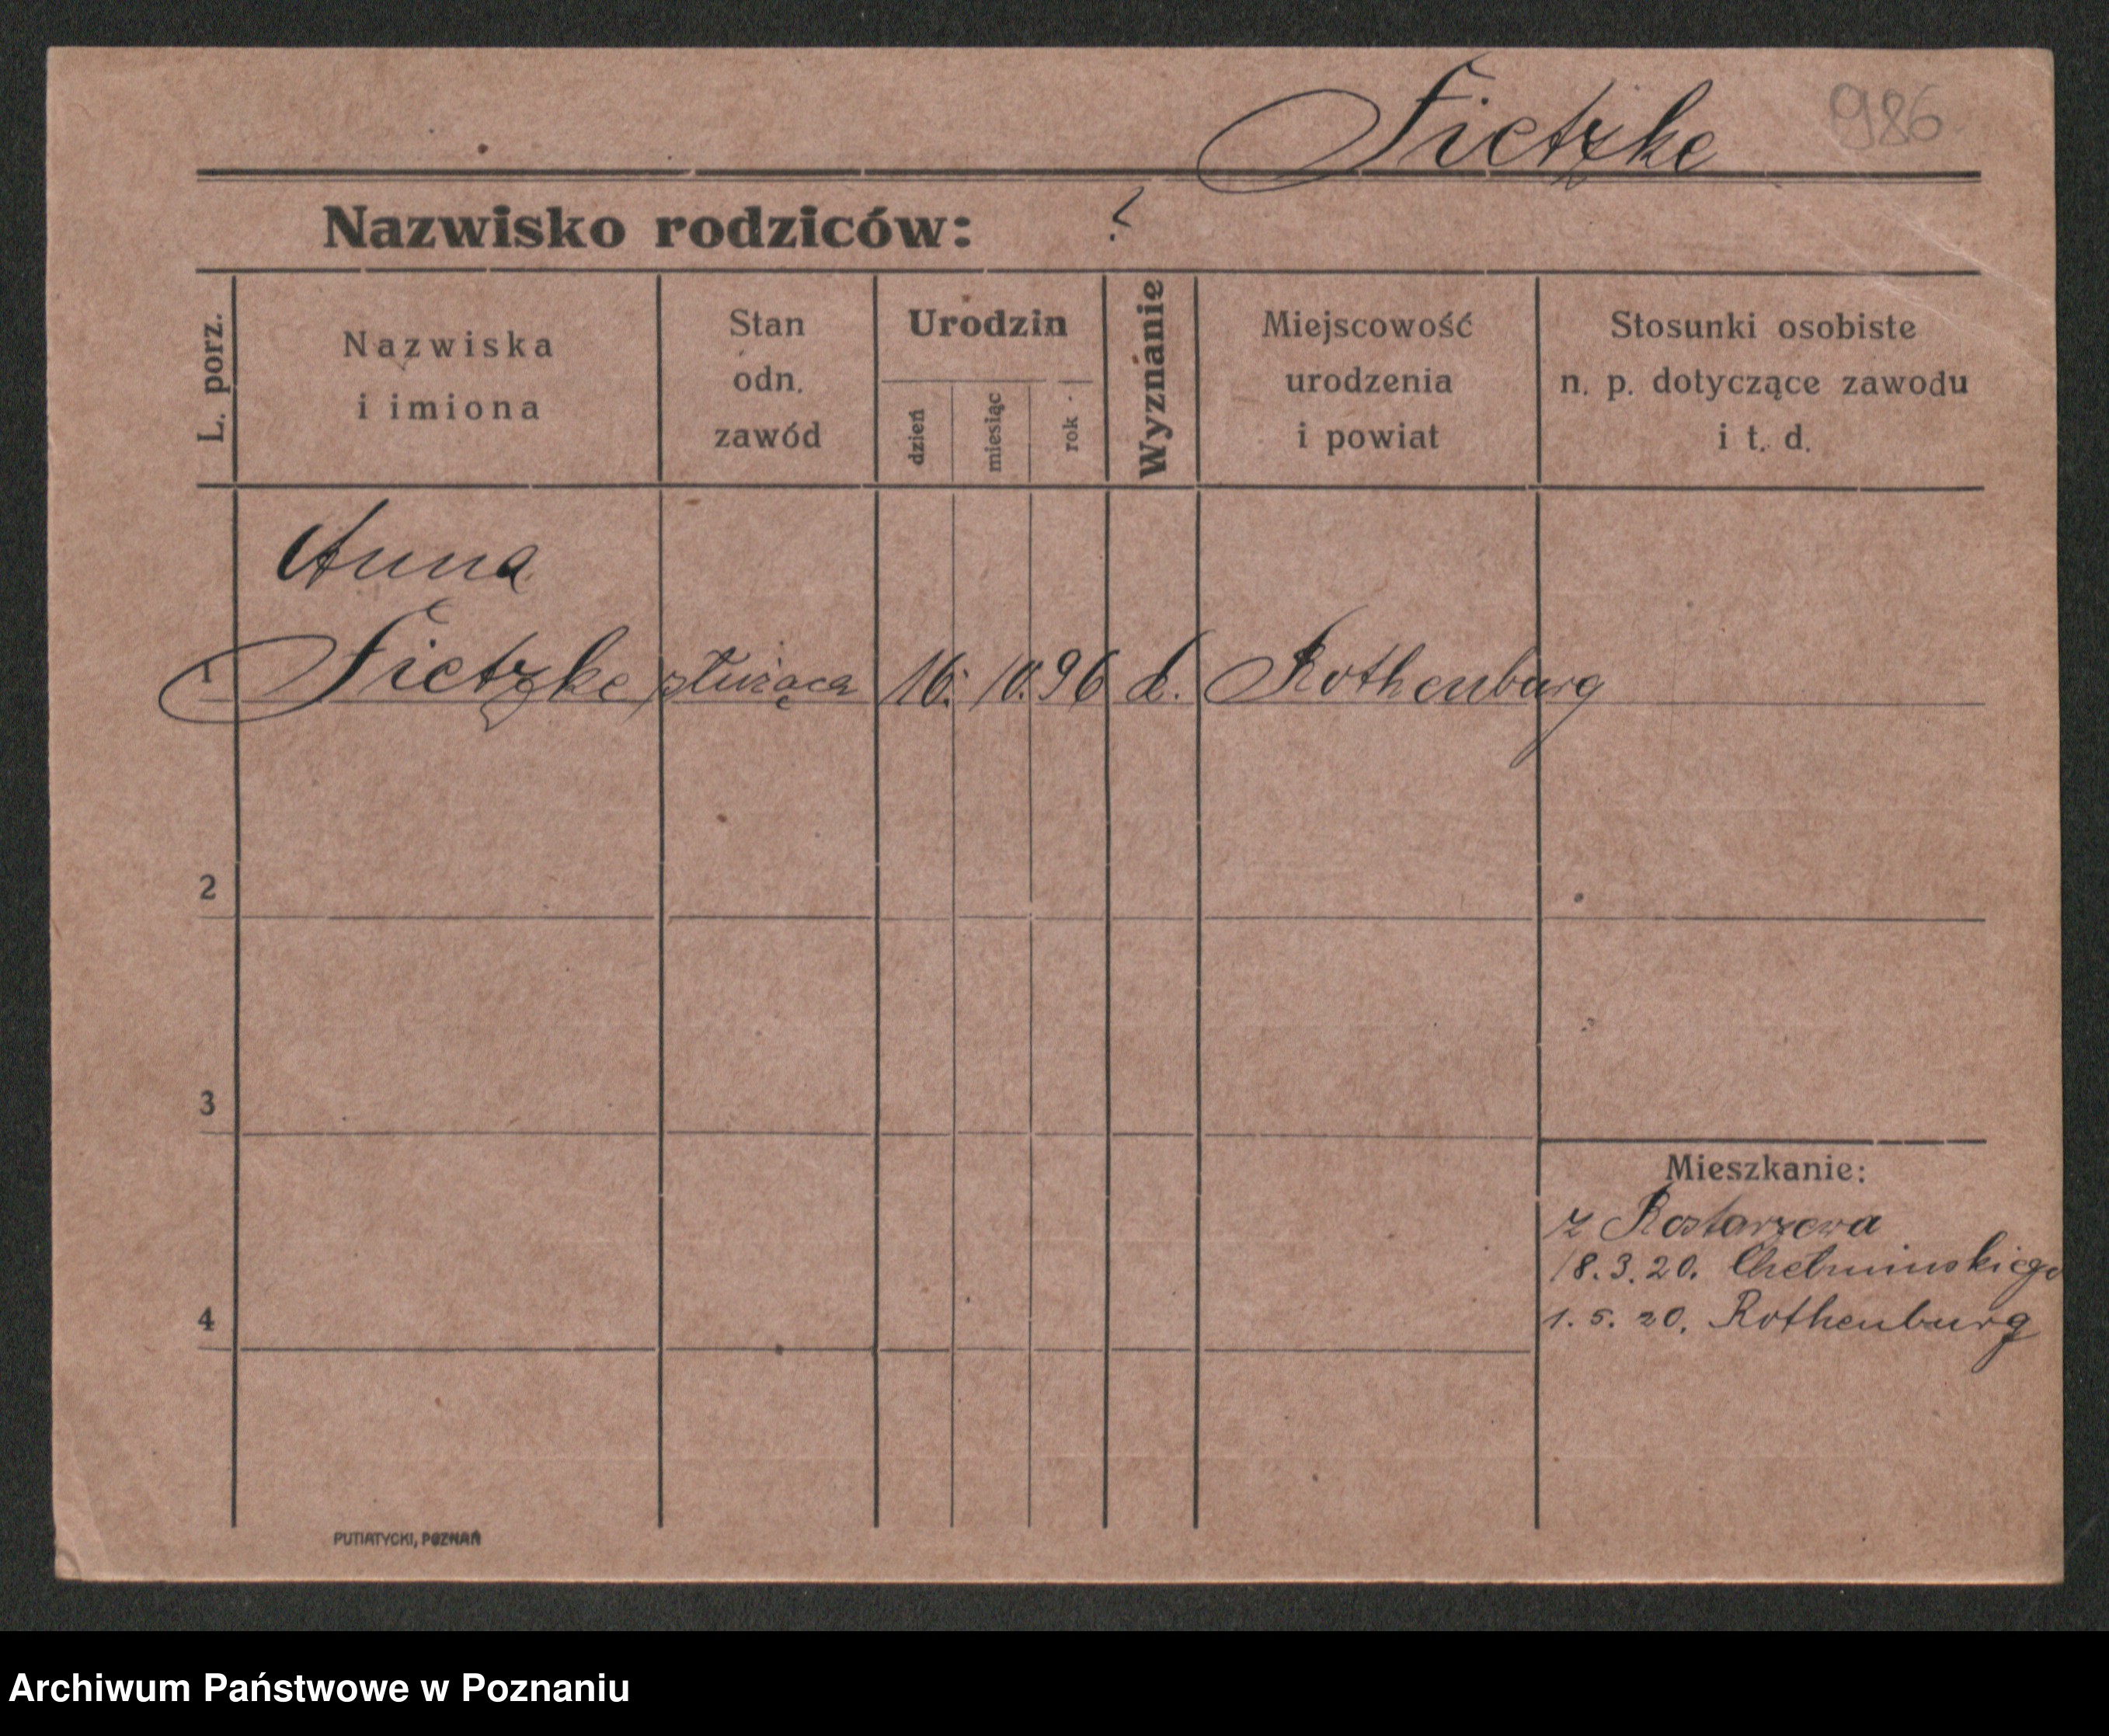 Fietzke 986
Nazwisko rodziców: ?
L. porz.
Nazwiska
i imiona
Stan
odn.
zawód
Urodzin
dzień
miesiąc
rok
Wyznanie
Miejscowość
urodzenia
i powiat
Stosunki osobiste
n. p. dotyczące zawodu
i t. d.
Anna
1 Fietzke służąca 16. 10. 96 Rothenburg
2
3
Mieszkanie:
z Rostarzewa
18. 3. 20. Chełmińskiego
4
1. 5. 20. Rothenburg
PUTIATYCKI, POZNAŃ
Archiwum Państwowe w Poznaniu